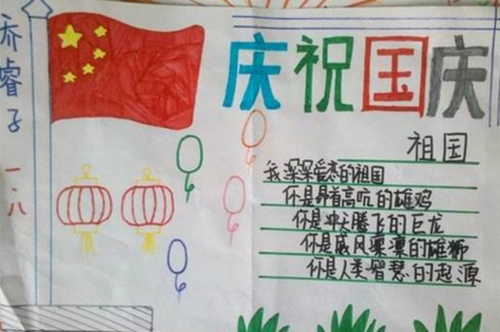 乔睿子 一.八
庆祝国庆
祖国
我深深爱恋的祖国
你是昂首高吭的雄鸡
你是冲天腾飞的巨龙
你是威风凛凛的雄狮
你是人类智慧的起源